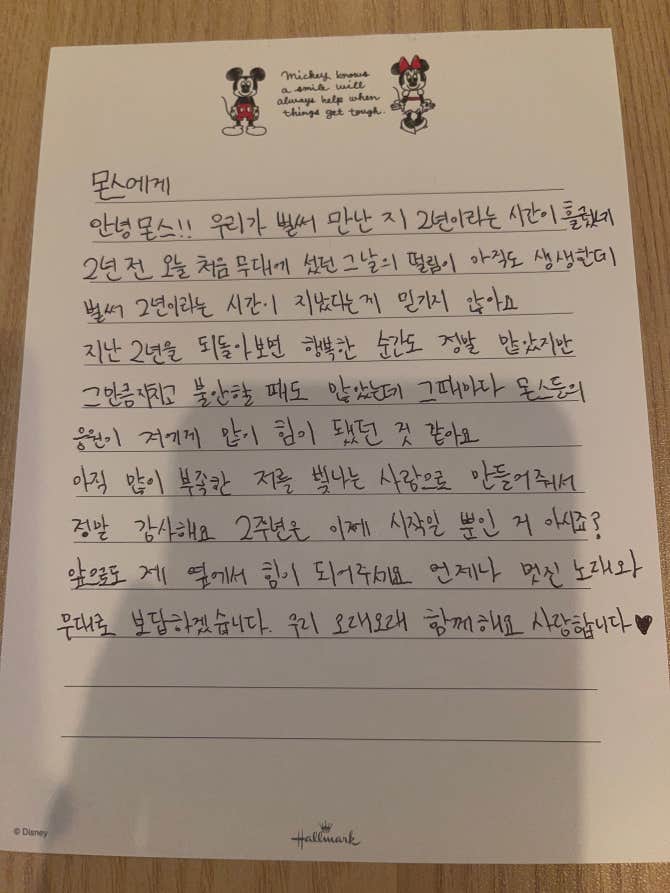 Mickey knows
a smile will
always help when
things get tough.
몬스에게
안녕 몬스!! 우리가 벌써 만난 지 2년이라는 시간이 흘렀네
2년 전 오늘 처음 무대에 섰던 그날의 떨림이 아직도 생생한데
벌써 2년이라는 시간이 지났다는게 믿기지 않아요
지난 2년을 되돌아보면 행복한 순간도 정말 많았지만
그만큼 지치고 불안할 때도 많았는데 그때마다 몬스들의
응원이 저에게 많이 힘이 됐던 것 같아요
아직 많이 부족한 저를 빛나는 사랑으로 만들어줘서
정말 감사해요 2주년은 이제 시작일 뿐인 거 아시죠?
앞으로도 제 옆에서 힘이 되어주세요 언제나 멋진 노래와
무대로 보답하겠습니다. 우리 오래오래 함께해요 사랑합니다♥
© Disney
Hallmark